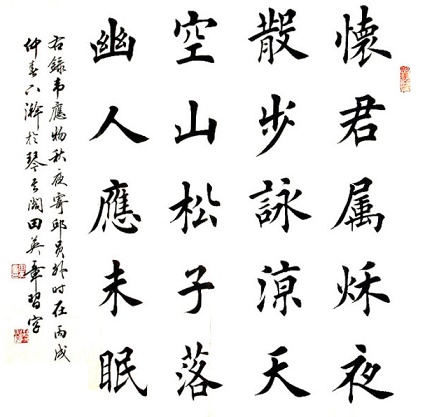 懷君属秋夜
散步詠涼天
空山松子落
幽人應未眠
右錄韦應物秋夜寄邱員外时在丙戌
仲春下澣於琴閣田英章習字